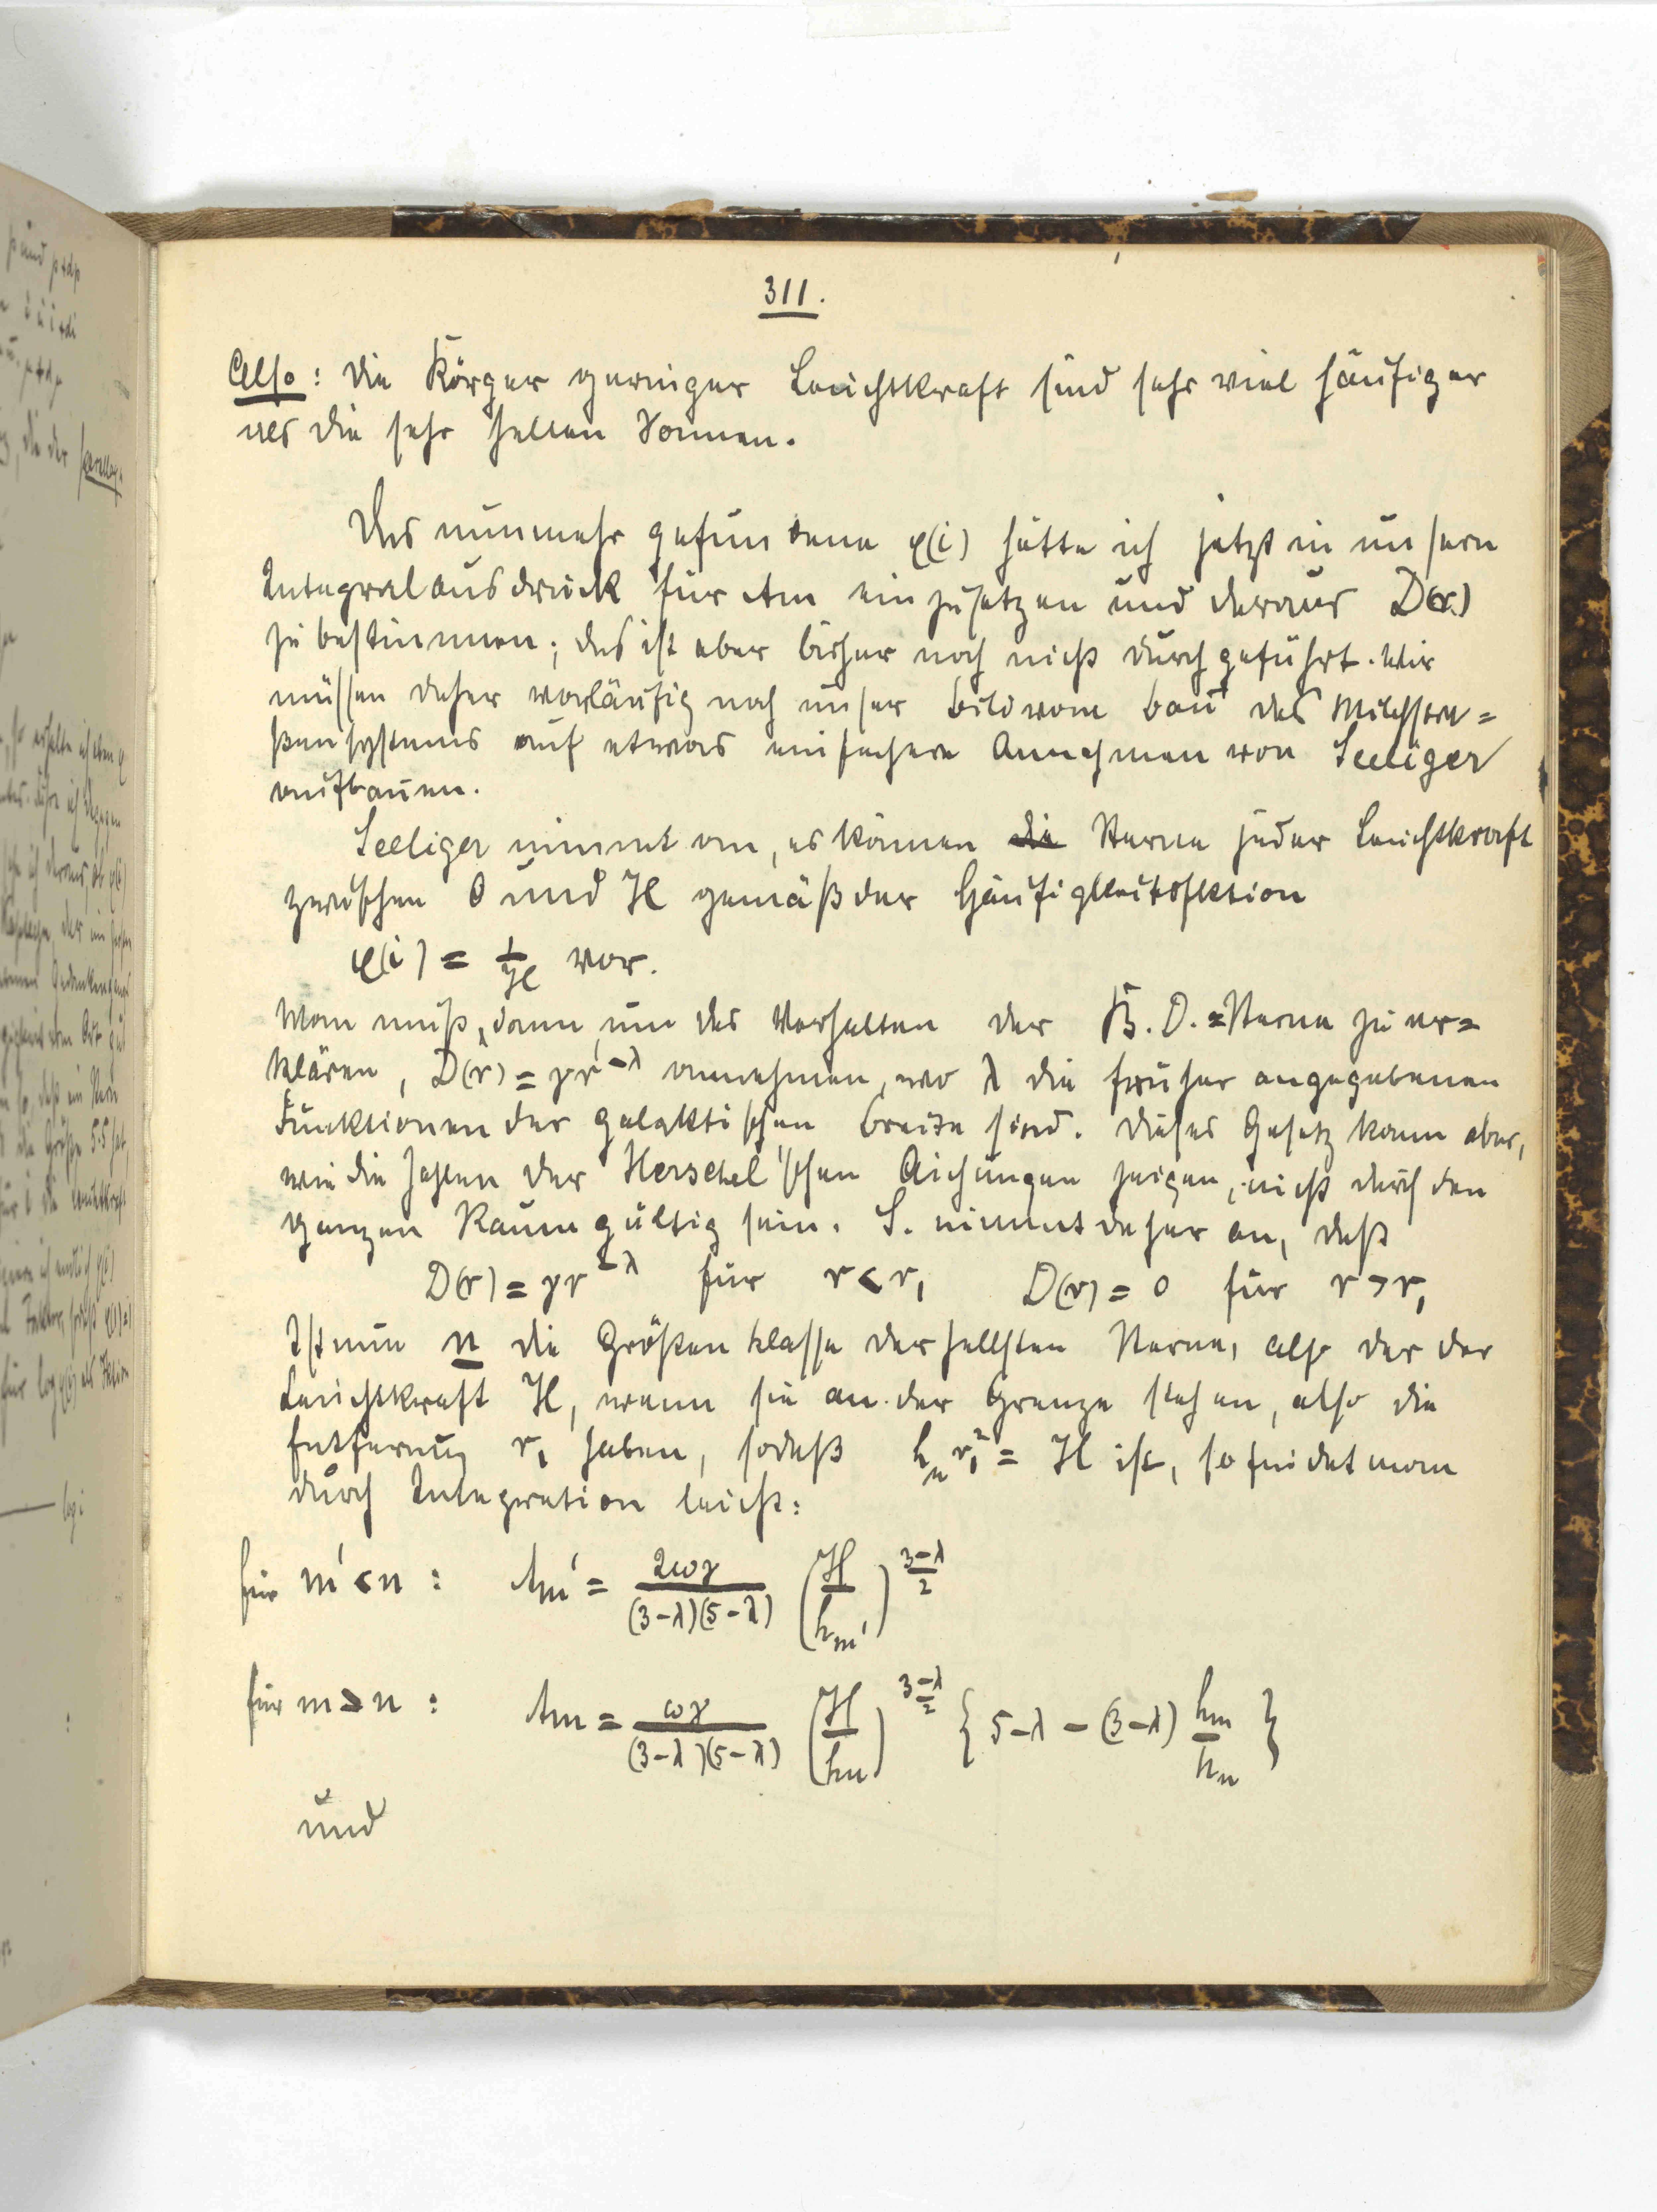 311.
Also: die Körper geringer Leuchtkraft sind sehr viel häufiger
als die sehr hellen Sonnen.
Das nunmehr gefundene φ(i) hätte ich jetzt in unsern
Integralausdruck für Am einzusetzen und daraus D(r)
zu bestimmen; das ist aber bisher noch nicht durchgeführt. Wir
müssen daher vorläufig noch unser Bild vom Bau des Milchstra=
ßensystems auf etwas einfachere Annahmen von Seeliger
aufbauen.
Seeliger nimmt an, es kämen die Sterne jeder Leuchtkraft
zwischen 0 und H gemäß der Häufigkeitsfktion
φ(i) = 1/H vor.
Man muß, dann, um das Verhalten der B.D.=Sterne zu er=
klären, D(r) = γr^-λ annehmen, wo λ die früher angegebenen
Funktionen der galaktischen Breite sind. Dieses Gesetz kann aber,
wie die Zahlen der Herschel'schen Aichungen zeigen, nicht durch den
ganzen Raum gültig sein. S. nimmt daher an, daß
D(r) = γr^-λ für r < r₁ D(r) = 0 für r > r₁
Ist nun n die Größenklasse der hellsten Sterne, also der der
Leuchtkraft H, wenn sie an der Grenze stehen, also die
Entfernung r₁ haben, sodaß hₙ r₁² = H ist, so findet man
durch Integration leicht:
für m' < n : Am' = 2ωγ/((3-λ)(5-λ)) (H/hm')^((3-λ)/2)
für m > n : Am = ωγ/((3-λ)(5-λ)) (H/hn)^((3-λ)/2) {5-λ - (3-λ) hm/hn}
und